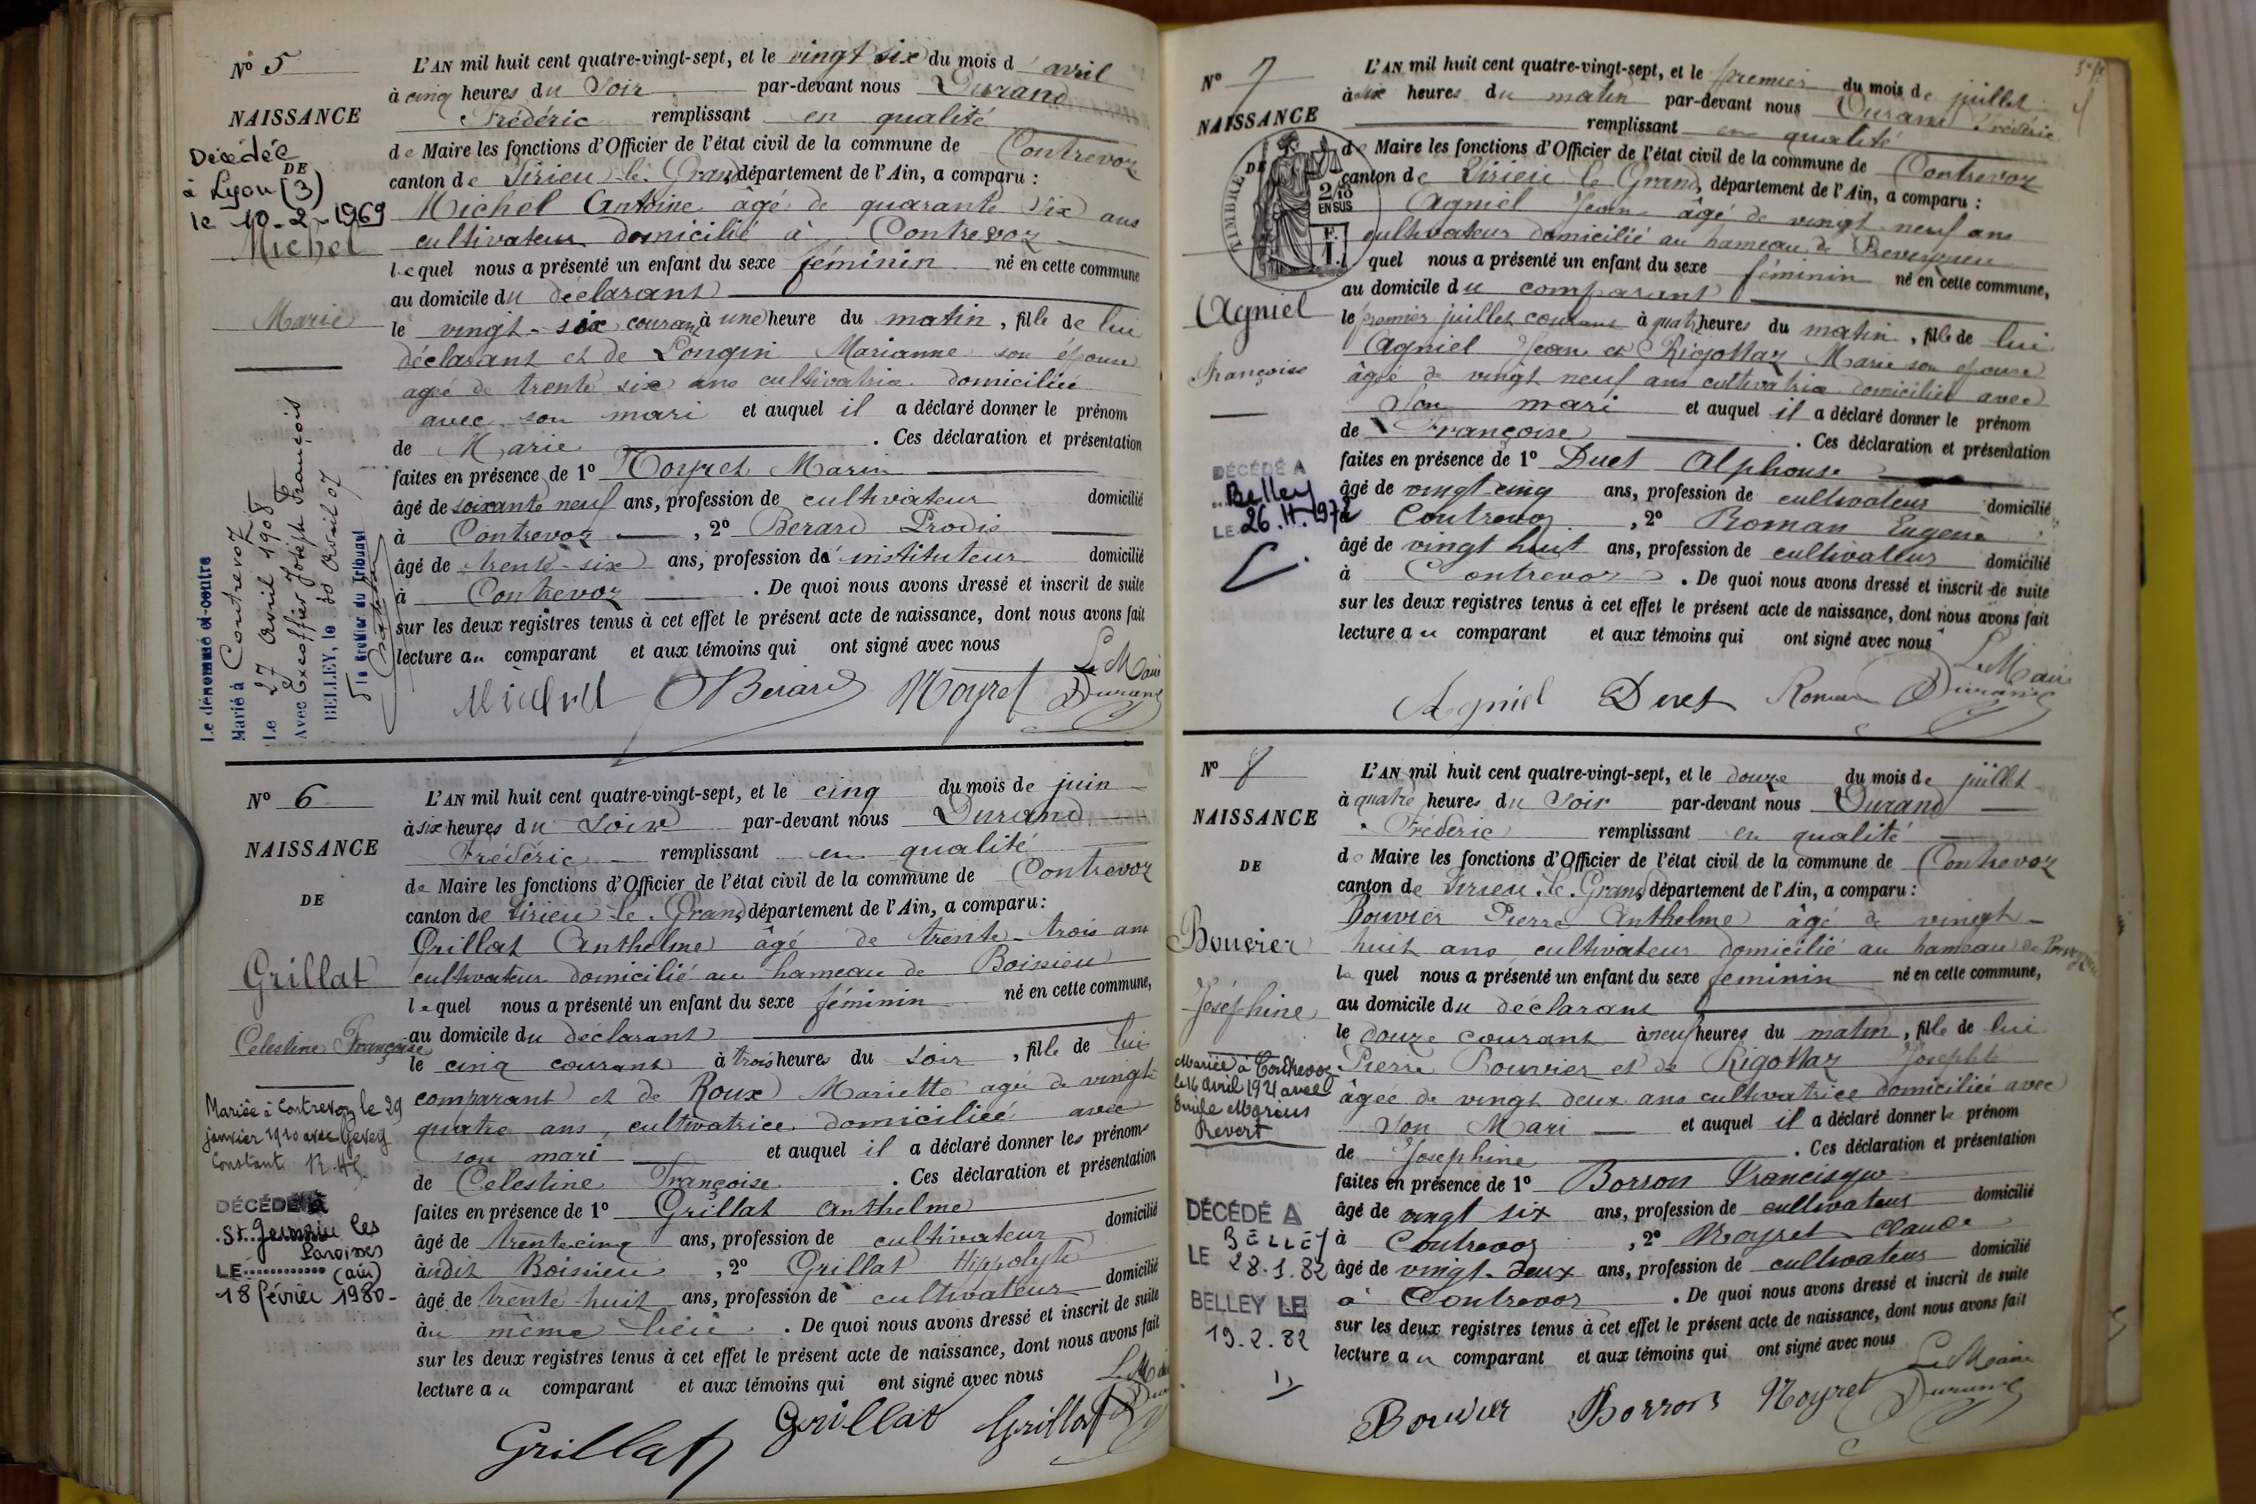 N° 5
NAISSANCE
DE
Décédée
à Lyon (3)
le 10-2-1969
Michel
Marie
Le dénommé ci-contre
Marié à Contrevoz
Le 27 Avril 1908
Avec Excoffier Joseph François
BELLEY, le 30 Avril 07
le Greffier du Tribunal
L'AN mil huit cent quatre-vingt-sept, et le vingt six du mois d'avril
à cinq heures du Soir par-devant nous Durand
Frédéric remplissant en qualité
de Maire les fonctions d'Officier de l'état civil de la commune de Contrevoz
canton de Virieu-le-Grand, département de l'Ain, a comparu :
Michel Antoine âgé de quarante six ans
cultivateur domicilié à Contrevoz
lequel nous a présenté un enfant du sexe féminin né en cette commune
au domicile du déclarant
le vingt-six courant à une heure du matin, fille de lui
déclarant et de Longin Marianne son épouse
agée de trente six ans cultivatrice domiciliée
avec son mari et auquel il a déclaré donner le prénom
de Marie . Ces déclaration et présentation
faites en présence de 1° Noyret Marin
âgé de soixante neuf ans, profession de cultivateur domicilié
à Contrevoz , 2° Berard Prodis
âgé de trente-six ans, profession de instituteur domicilié
à Contrevoz . De quoi nous avons dressé et inscrit de suite
sur les deux registres tenus à cet effet le présent acte de naissance, dont nous avons fait
lecture au comparant et aux témoins qui ont signé avec nous
Le Maire
Michel Berard Noyret Durand
N° 6
NAISSANCE
DE
Grillat
Celestine Françoise
Mariée à Contrevoz le 29
janvier 1910 avec Gevey
Constant
DÉCÉDÉ A
St Germain les
Paroisses
LE (ain)
18 février 1980-
L'AN mil huit cent quatre-vingt-sept, et le cinq du mois de juin
à six heures du Soir par-devant nous Durand
Frédéric remplissant en qualité
de Maire les fonctions d'Officier de l'état civil de la commune de Contrevoz
canton de Virieu-le-Grand, département de l'Ain, a comparu :
Grillat Anthelme âgé de trente-trois ans
cultivateur domicilié au hameau de Boissieu
lequel nous a présenté un enfant du sexe féminin né en cette commune,
au domicile du déclarant
le cinq courant à trois heures du soir , fille de lui
comparant et de Roux Mariette agée de vingt-
quatre ans, cultivatrice domiciliée avec
son mari et auquel il a déclaré donner les prénoms
de Celestine Françoise . Ces déclaration et présentation
faites en présence de 1° Grillat Anthelme
âgé de trente cinq ans, profession de cultivateur domicilié
audit Boissieu , 2° Grillat Hippolyte
âgé de trente huit ans, profession de cultivateur domicilié
au même lieu . De quoi nous avons dressé et inscrit de suite
sur les deux registres tenus à cet effet le présent acte de naissance, dont nous avons fait
lecture au comparant et aux témoins qui ont signé avec nous
Le Maire
Grillat Grillat Grillat Durand
N° 7
NAISSANCE
DE
TIMBRE
2/10
EN SUS
Agniel
Françoise
DÉCÉDÉ A
Belley
LE 26.11.1972
L'AN mil huit cent quatre-vingt-sept, et le premier du mois de juillet
à six heures du matin par-devant nous Durand Frédéric
remplissant en qualité
de Maire les fonctions d'Officier de l'état civil de la commune de Contrevoz
canton de Virieu-le-Grand, département de l'Ain, a comparu :
Agniel Jean âgé de vingt neuf ans
cultivateur domicilié au hameau de
quel nous a présenté un enfant du sexe féminin né en cette commune,
au domicile du comparant
le premier juillet courant à quatre heures du matin, fille de lui
Agniel Jean et Rigollaz Marie son épouse
âgée de vingt neuf ans cultivatrice domiciliée avec
Son mari et auquel il a déclaré donner le prénom
de Françoise . Ces déclaration et présentation
faites en présence de 1° Duet Alphonse
âgé de vingt-cinq ans, profession de cultivateur domicilié
à Contrevoz , 2° Roman Eugène
âgé de vingt huit ans, profession de cultivateur domicilié
à Contrevoz . De quoi nous avons dressé et inscrit de suite
sur les deux registres tenus à cet effet le présent acte de naissance, dont nous avons fait
lecture au comparant et aux témoins qui ont signé avec nous
Le Maire
Agniel Duet Roman Durand
N° 8
NAISSANCE
DE
Bouvier
Joséphine
Mariée à Contrevoz
le 16 Avril 1921 avec
Emile Marius
Revert
DÉCÉDÉ A
BELLEY
LE 28.1.82
BELLEY LE
19.2.82
L'AN mil huit cent quatre-vingt-sept, et le douze du mois de juillet
à quatre heures du Soir par-devant nous Durand
Frédéric remplissant en qualité
de Maire les fonctions d'Officier de l'état civil de la commune de Contrevoz
canton de Virieu-le-Grand, département de l'Ain, a comparu :
Bouvier Pierre Anthelme âgé de vingt-
huit ans cultivateur domicilié au hameau de
le quel nous a présenté un enfant du sexe féminin né en cette commune,
au domicile du déclarant
le douze courant à neuf heures du matin, fille de lui
Pierre Bouvier et de Rigollaz Josephte
âgée de vingt deux ans cultivatrice domiciliée avec
Son Mari et auquel il a déclaré donner le prénom
de Josephine . Ces déclaration et présentation
faites en présence de 1° Borron Francisque
âgé de vingt six ans, profession de cultivateur domicilié
à Contrevoz , 2° Noyret Claude
âgé de vingt-deux ans, profession de cultivateur domicilié
à Contrevoz . De quoi nous avons dressé et inscrit de suite
sur les deux registres tenus à cet effet le présent acte de naissance, dont nous avons fait
lecture au comparant et aux témoins qui ont signé avec nous
Le Maire
Bouvier Borron Noyret Durand